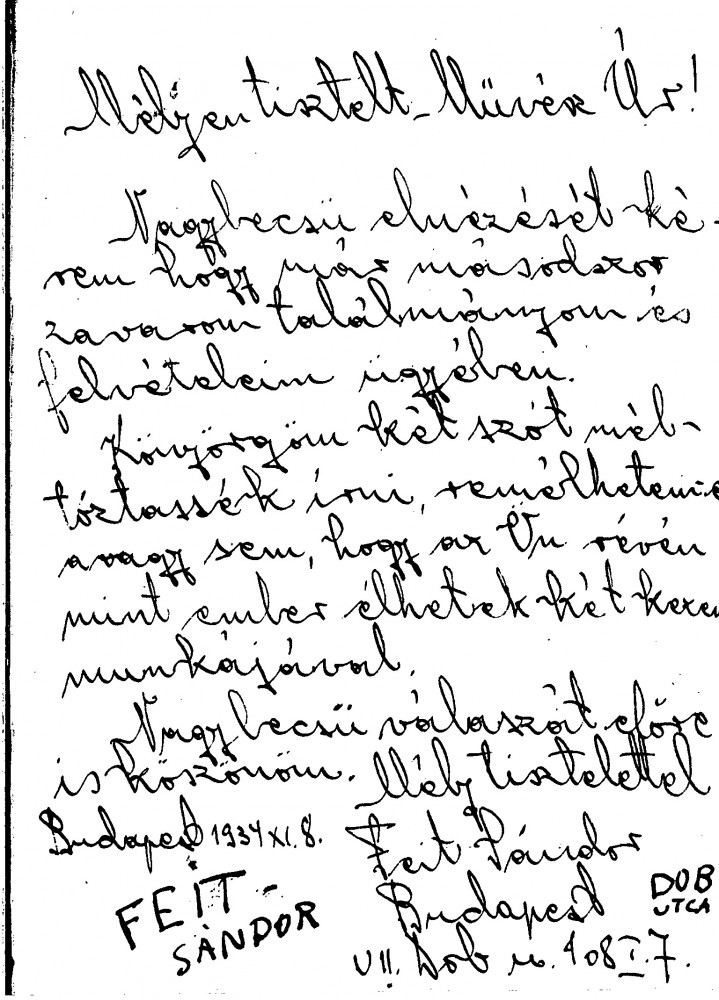 Mélyen tisztelt Müvész Úr!
Nagybecsü elnézését ké-
rem hogy már másodszor
zavarom találmányom és
felvételeim ügyében.
Könyörgöm két szót mél-
tóztassék irni, remélhetem-e
avagy sem, hogy az Ön révén
mint ember élhetek két kezem
munkájával.
Nagybecsü válaszát előre
is köszönöm. Mély tisztelettel
Budapest 1934 XI. 8. Feit Sándor
FEIT- Budapest DOB
SÀNDOR UTCA
VII. Dob u. 108 I. 7.